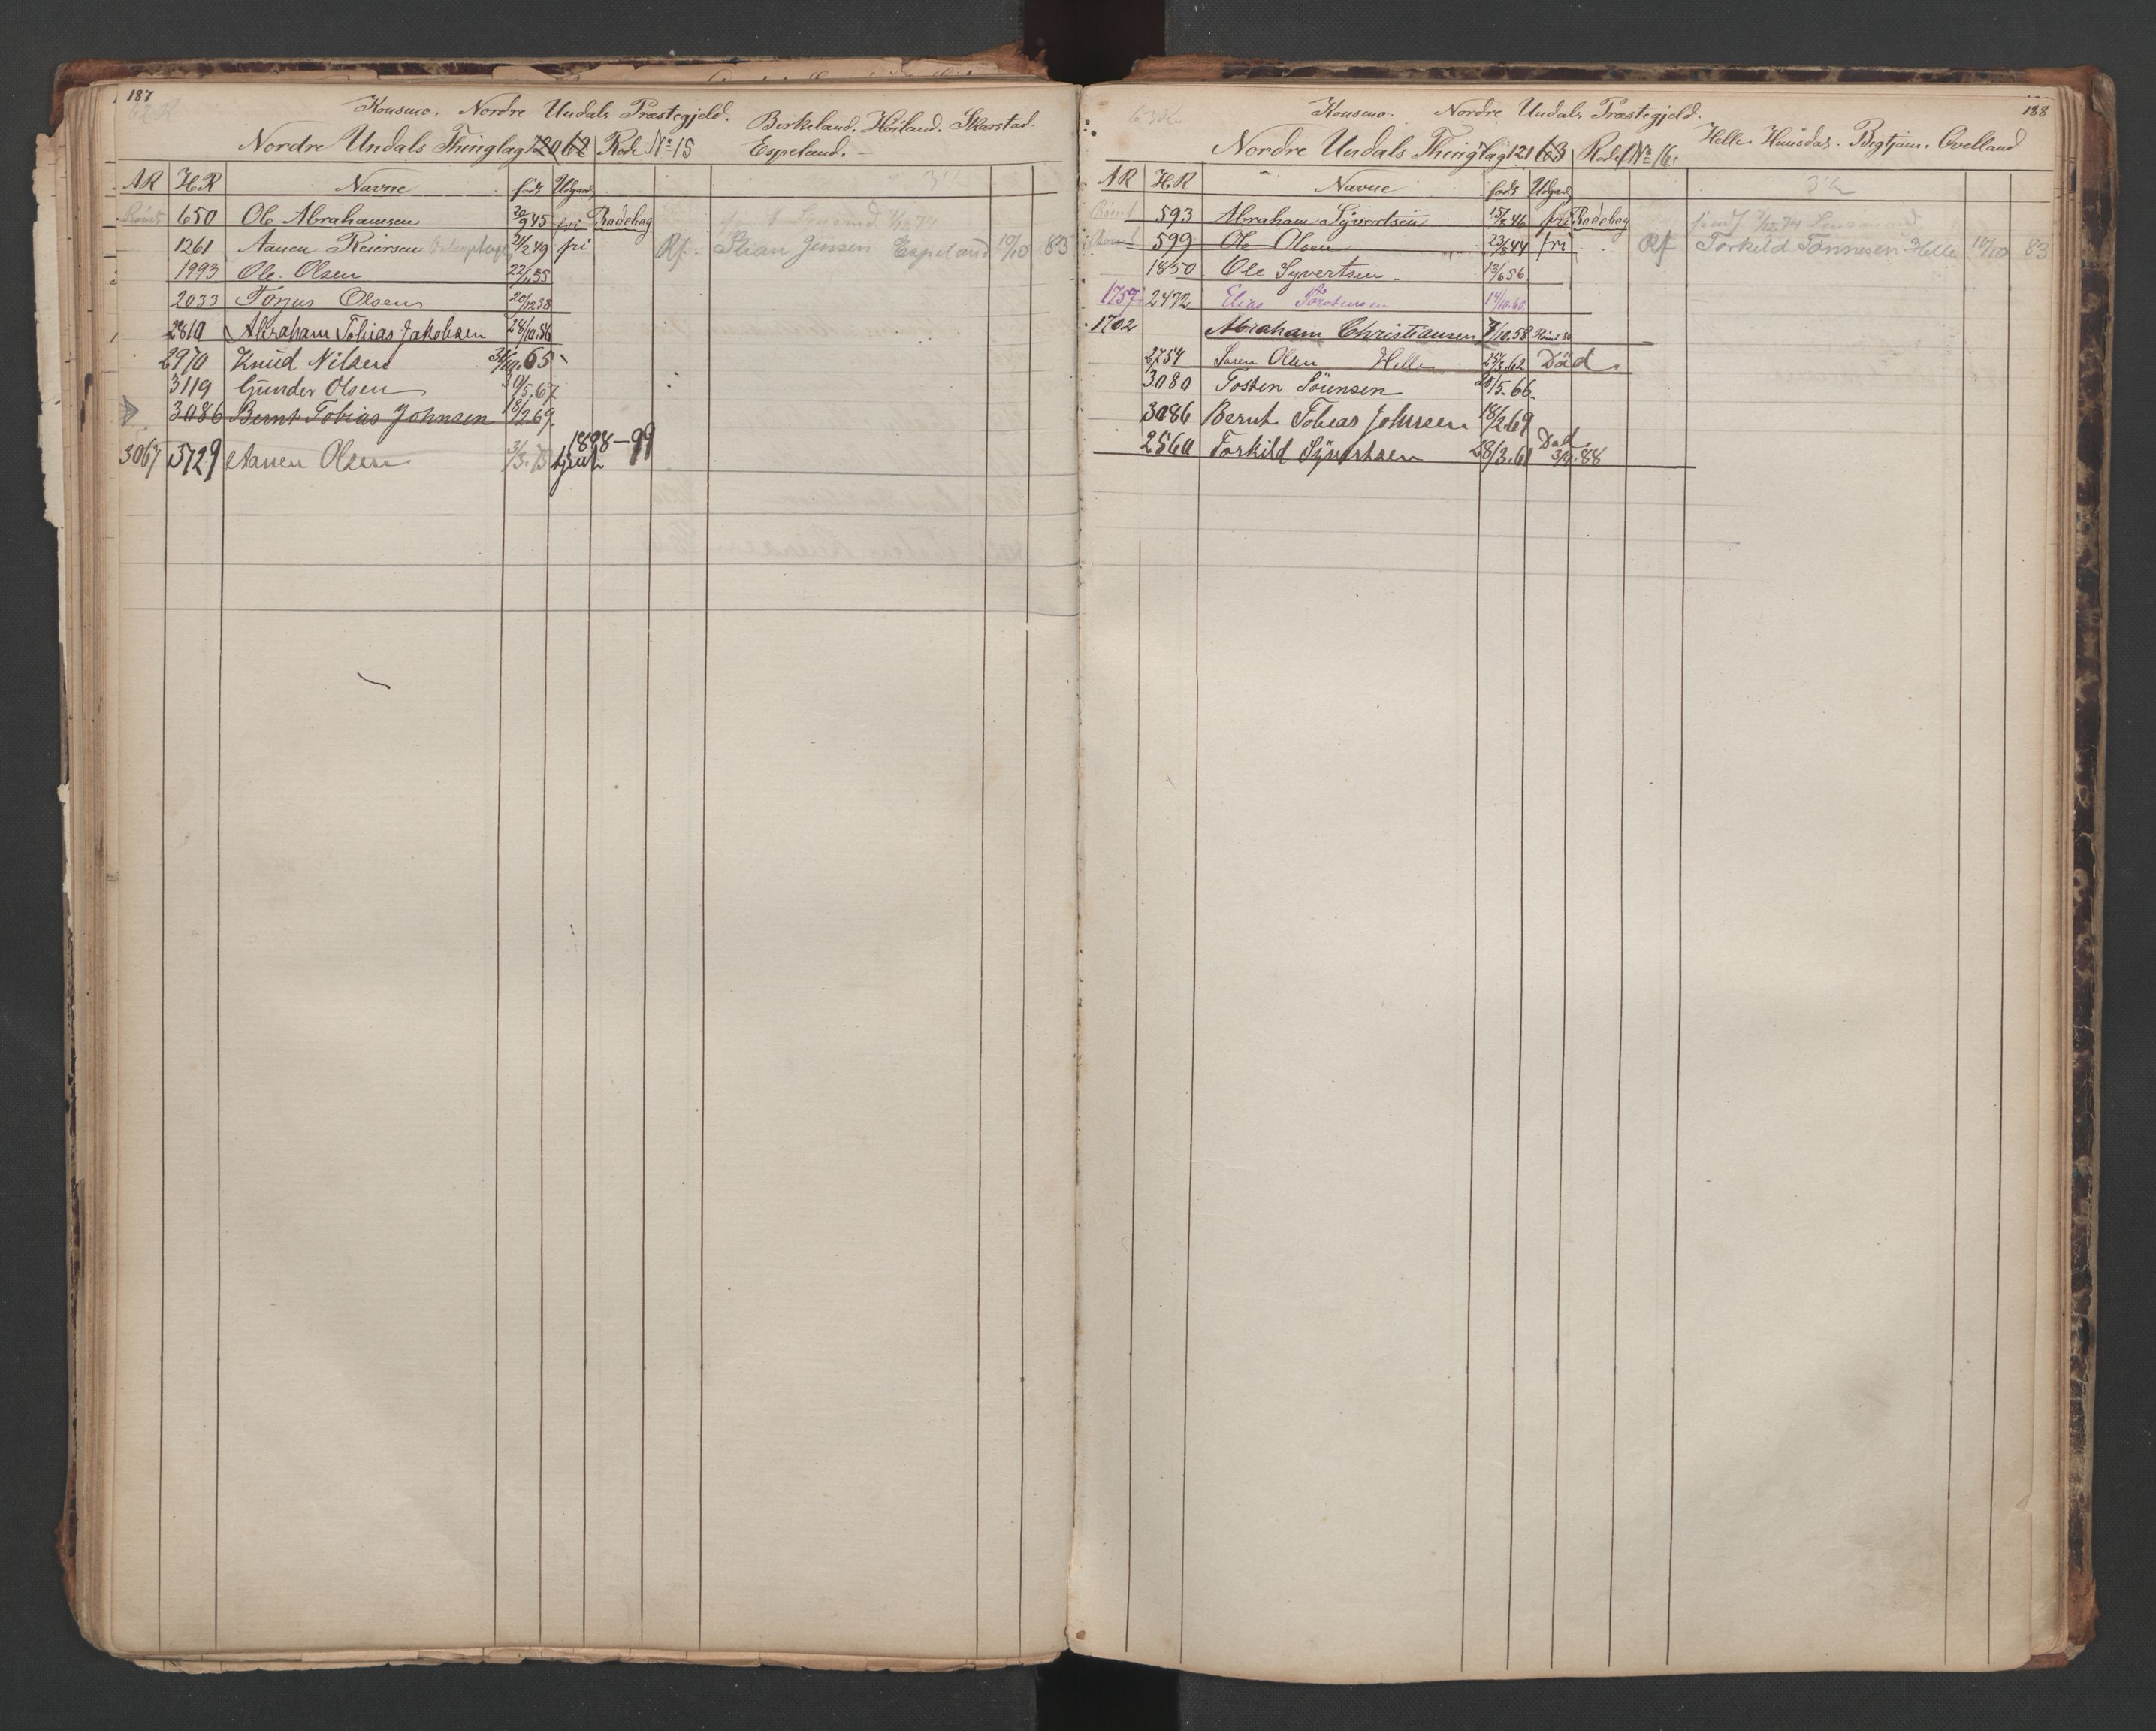 187
62 R
Konsmo. Nordre Undals Præstegjeld. Birkeland. Höiland. Skarstad.
Nordre Undals Thinglag 120 62 Rode No 15 Espeland.
AR HR Navne född Udgaaed
650 Ole Abrahamsen 20/9 45 fri Rodebog
1261 Aanen Reiersen 21/2 49 fri Rf. Stian Jensen Espeland 10/10 83
1993 Ole Olsen 22/11 55
2033 Torjus Olsen 20/12 58
2810 Abraham Tobias Jakobsen 28/10.56
2970 Knud Nilsen 31/10.65
3119 Gunder Olsen 30/5.67
3086 Bernt Tobias Johnsen 18/2.69
3067 3729 Aanen Olsen 3/3.75 tjent 1898-99
188
Konsmo. Nordre Undals Præstegjeld.
Nordre Undals Thinglag 121 63 Rode No 16. Helle. Huusdal. Bigtjøm. Ovelland
AR HR Navne född Udgaaed
Römt 593 Abraham Syvertsen 15/8 46 fri Rodebog
Römt 599 Ole Olsen 23/8 44 fri Rf Torkild Tönnesen Helle 10/10 83
1850 Ole Syvertsen 13/6 56
1757 2472 Elias Torstensen 14/10.60
1702 Abraham Christiansen 7/10.58 Römt 80
2754 Soren Olsen Helle 25/3.62 Död
3080 Tosten Sörensen 20/5.66
3086 Bernt Tobias Johnsen 18/2.69
2560 Torkild Syvertsen 28/3.61 Död 3/9.88